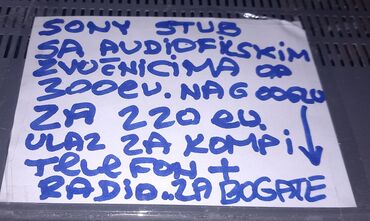 SONY STUB
SA AUDIOFILSKIM
ZVUČNICIMA OD
300EU. NA GOOGLU
ZA 220 EU.
ULAZ ZA KOMP I
TELEFON +
RADIO..ZA BOGATE